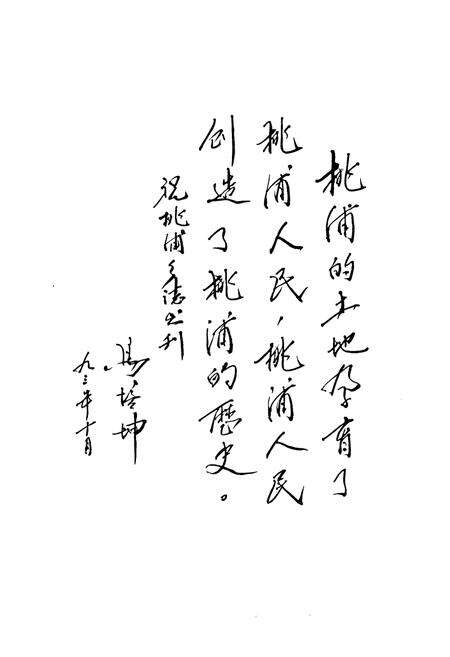 桃浦的土地孕育了
桃浦人民，桃浦人民
创造了桃浦的歷史。
祝桃浦乡志出刊
馬培坤
九三年十月